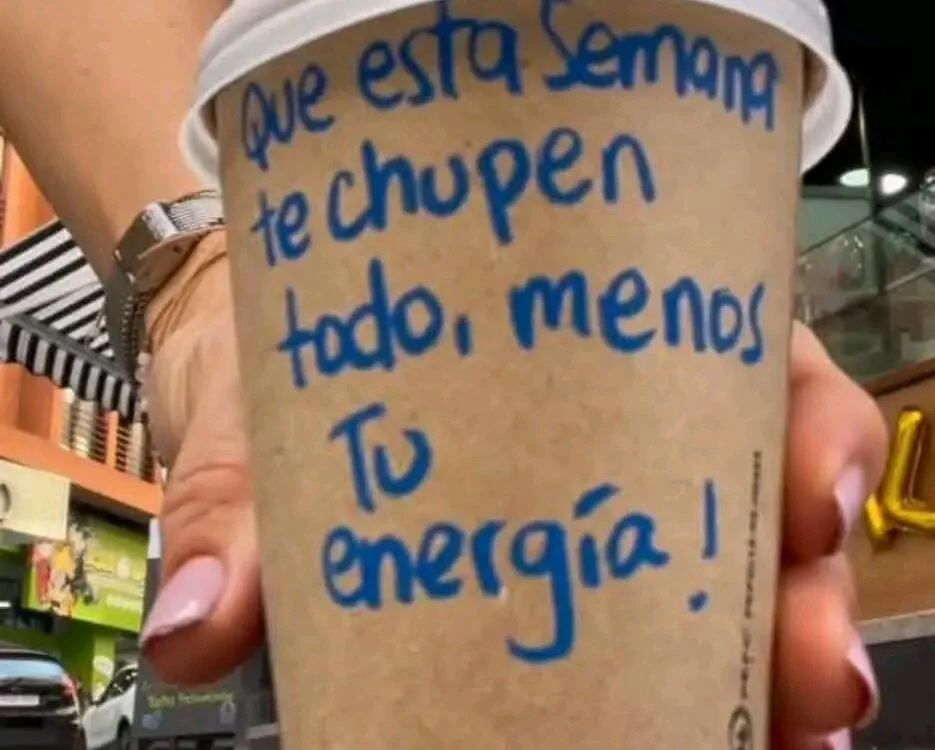 Que esta Semana
te chupen
todo, menos
Tu
energía!